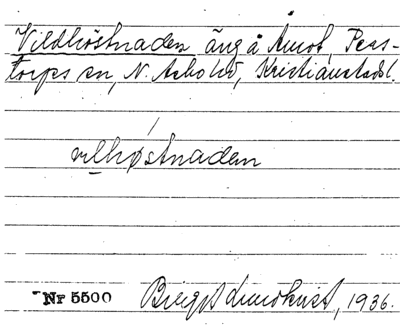 Vildhöstnaden äng å Åmot, Peas-
torps sn, N. Åsbo hd, Kristianstads l.
vilhøstnaden
Nr 5500 Birgit Lundkvist, 1936.